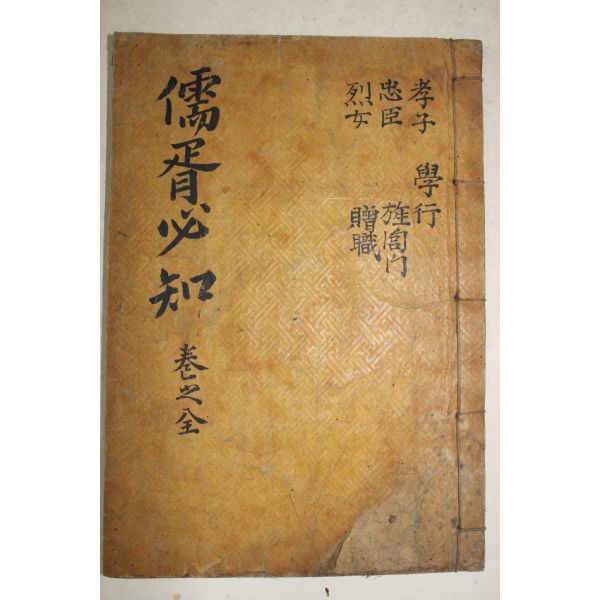 孝子 學行
忠臣 旌閭門
烈女 贈職
儒胥必知
卷之全